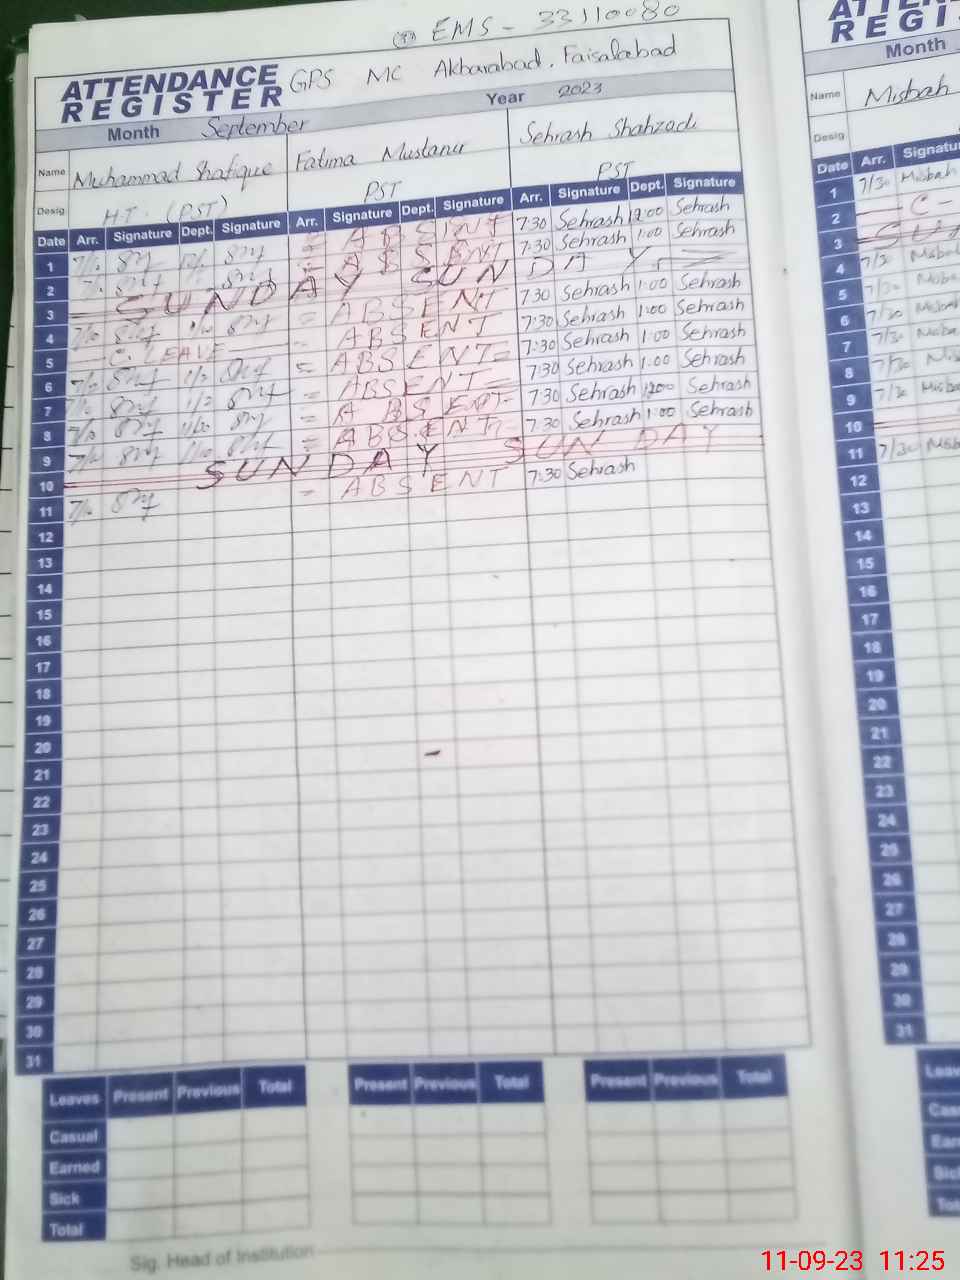 EMS - 33110080
ATTENDANCE REGISTER GPS MC Akbarabad, Faisalabad
Month September Year 2023
Name Muhammad Shafique Fatima Mustanir Sehrash Shahzadi
Desig H.T. (PST) PST PST
Date Arr. Signature Dept. Signature Arr. Signature Dept. Signature Arr. Signature Dept. Signature
1 = ABSENT 7:30 Sehrash 12:00 Sehrash
2 = ABSENT 7:30 Sehrash 1:00 Sehrash
3 SUNDAY SUNDAY
4 = ABSENT 7:30 Sehrash 1:00 Sehrash
5 C. LEAVE - ABSENT 7:30 Sehrash 1:00 Sehrash
6 = ABSENT = 7:30 Sehrash 1:00 Sehrash
7 - ABSENT = 7:30 Sehrash 1:00 Sehrash
8 = ABSENT 7:30 Sehrash 12:00 Sehrash
9 = ABSENT 7:30 Sehrash 1:00 Sehrash
10 SUNDAY SUNDAY
11 - ABSENT 7:30 Sehrash
12
13
14
15
16
17
18
19
20
21
22
23
24
25
26
27
28
29
30
31
Leaves Present Previous Total Present Previous Total Present Previous Total
Casual
Earned
Sick
Total
Sig. Head of Institution
REGI
Month
Name Misbah
Desig
Date Arr. Signatur
1 7/30 Misbah
2 C-
3 SU
4 7/30 Misba
5 7/30 Misba
6 7/30 Misba
7 7/30 Misba
8 7/30 Mis
9 7/30 Misba
10
11 7/30 Misb
12
13
14
15
16
17
18
19
20
21
22
23
24
25
26
27
28
29
30
31
11-09-23 11:25